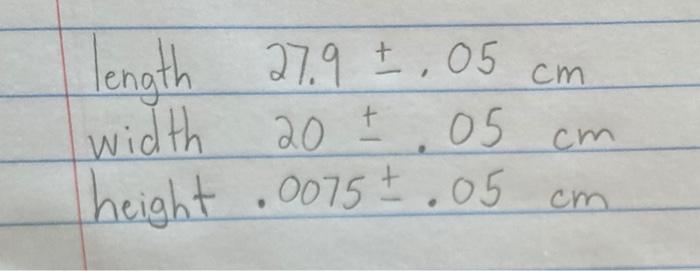 length 27.9 ± .05 cm
width 20 ± .05 cm
height .0075 ± .05 cm